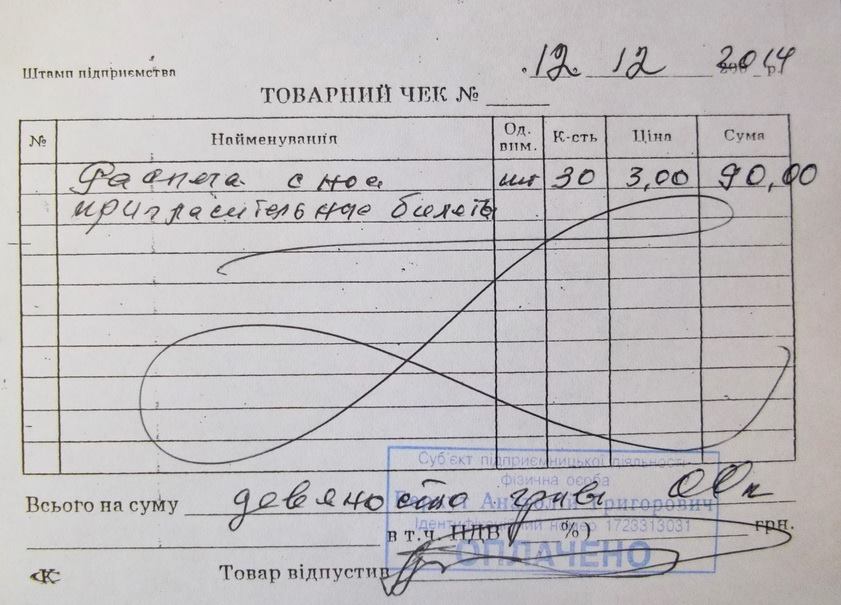 12 12 2014
Штамп підприємства р.
ТОВАРНИЙ ЧЕК №
№ Найменування Од. вим. К-сть Ціна Сума
с ное шт 30 3,00 90,00
пригласительное билеты
Суб'єкт підприємницької діяльності
фізична особа
Всього на суму девяносто гривн 00 к
Григорович
Ідентифікаційний номер 1723313031
грн.
в т.ч. ПДВ %)
ОПЛАЧЕНО
Товар відпустив